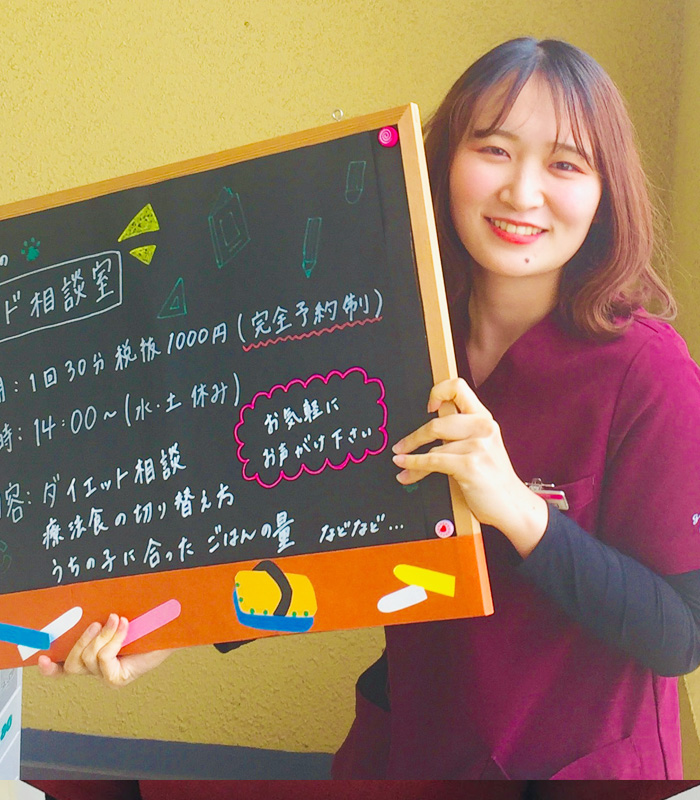 の
ド相談室
間：1回30分 税抜1000円(完全予約制)
時：14:00〜(水・土 休み)
内容：ダイエット相談
療法食の切り替え方
うちの子に合ったごはんの量 などなど…
お気軽に
お声がけ下さい